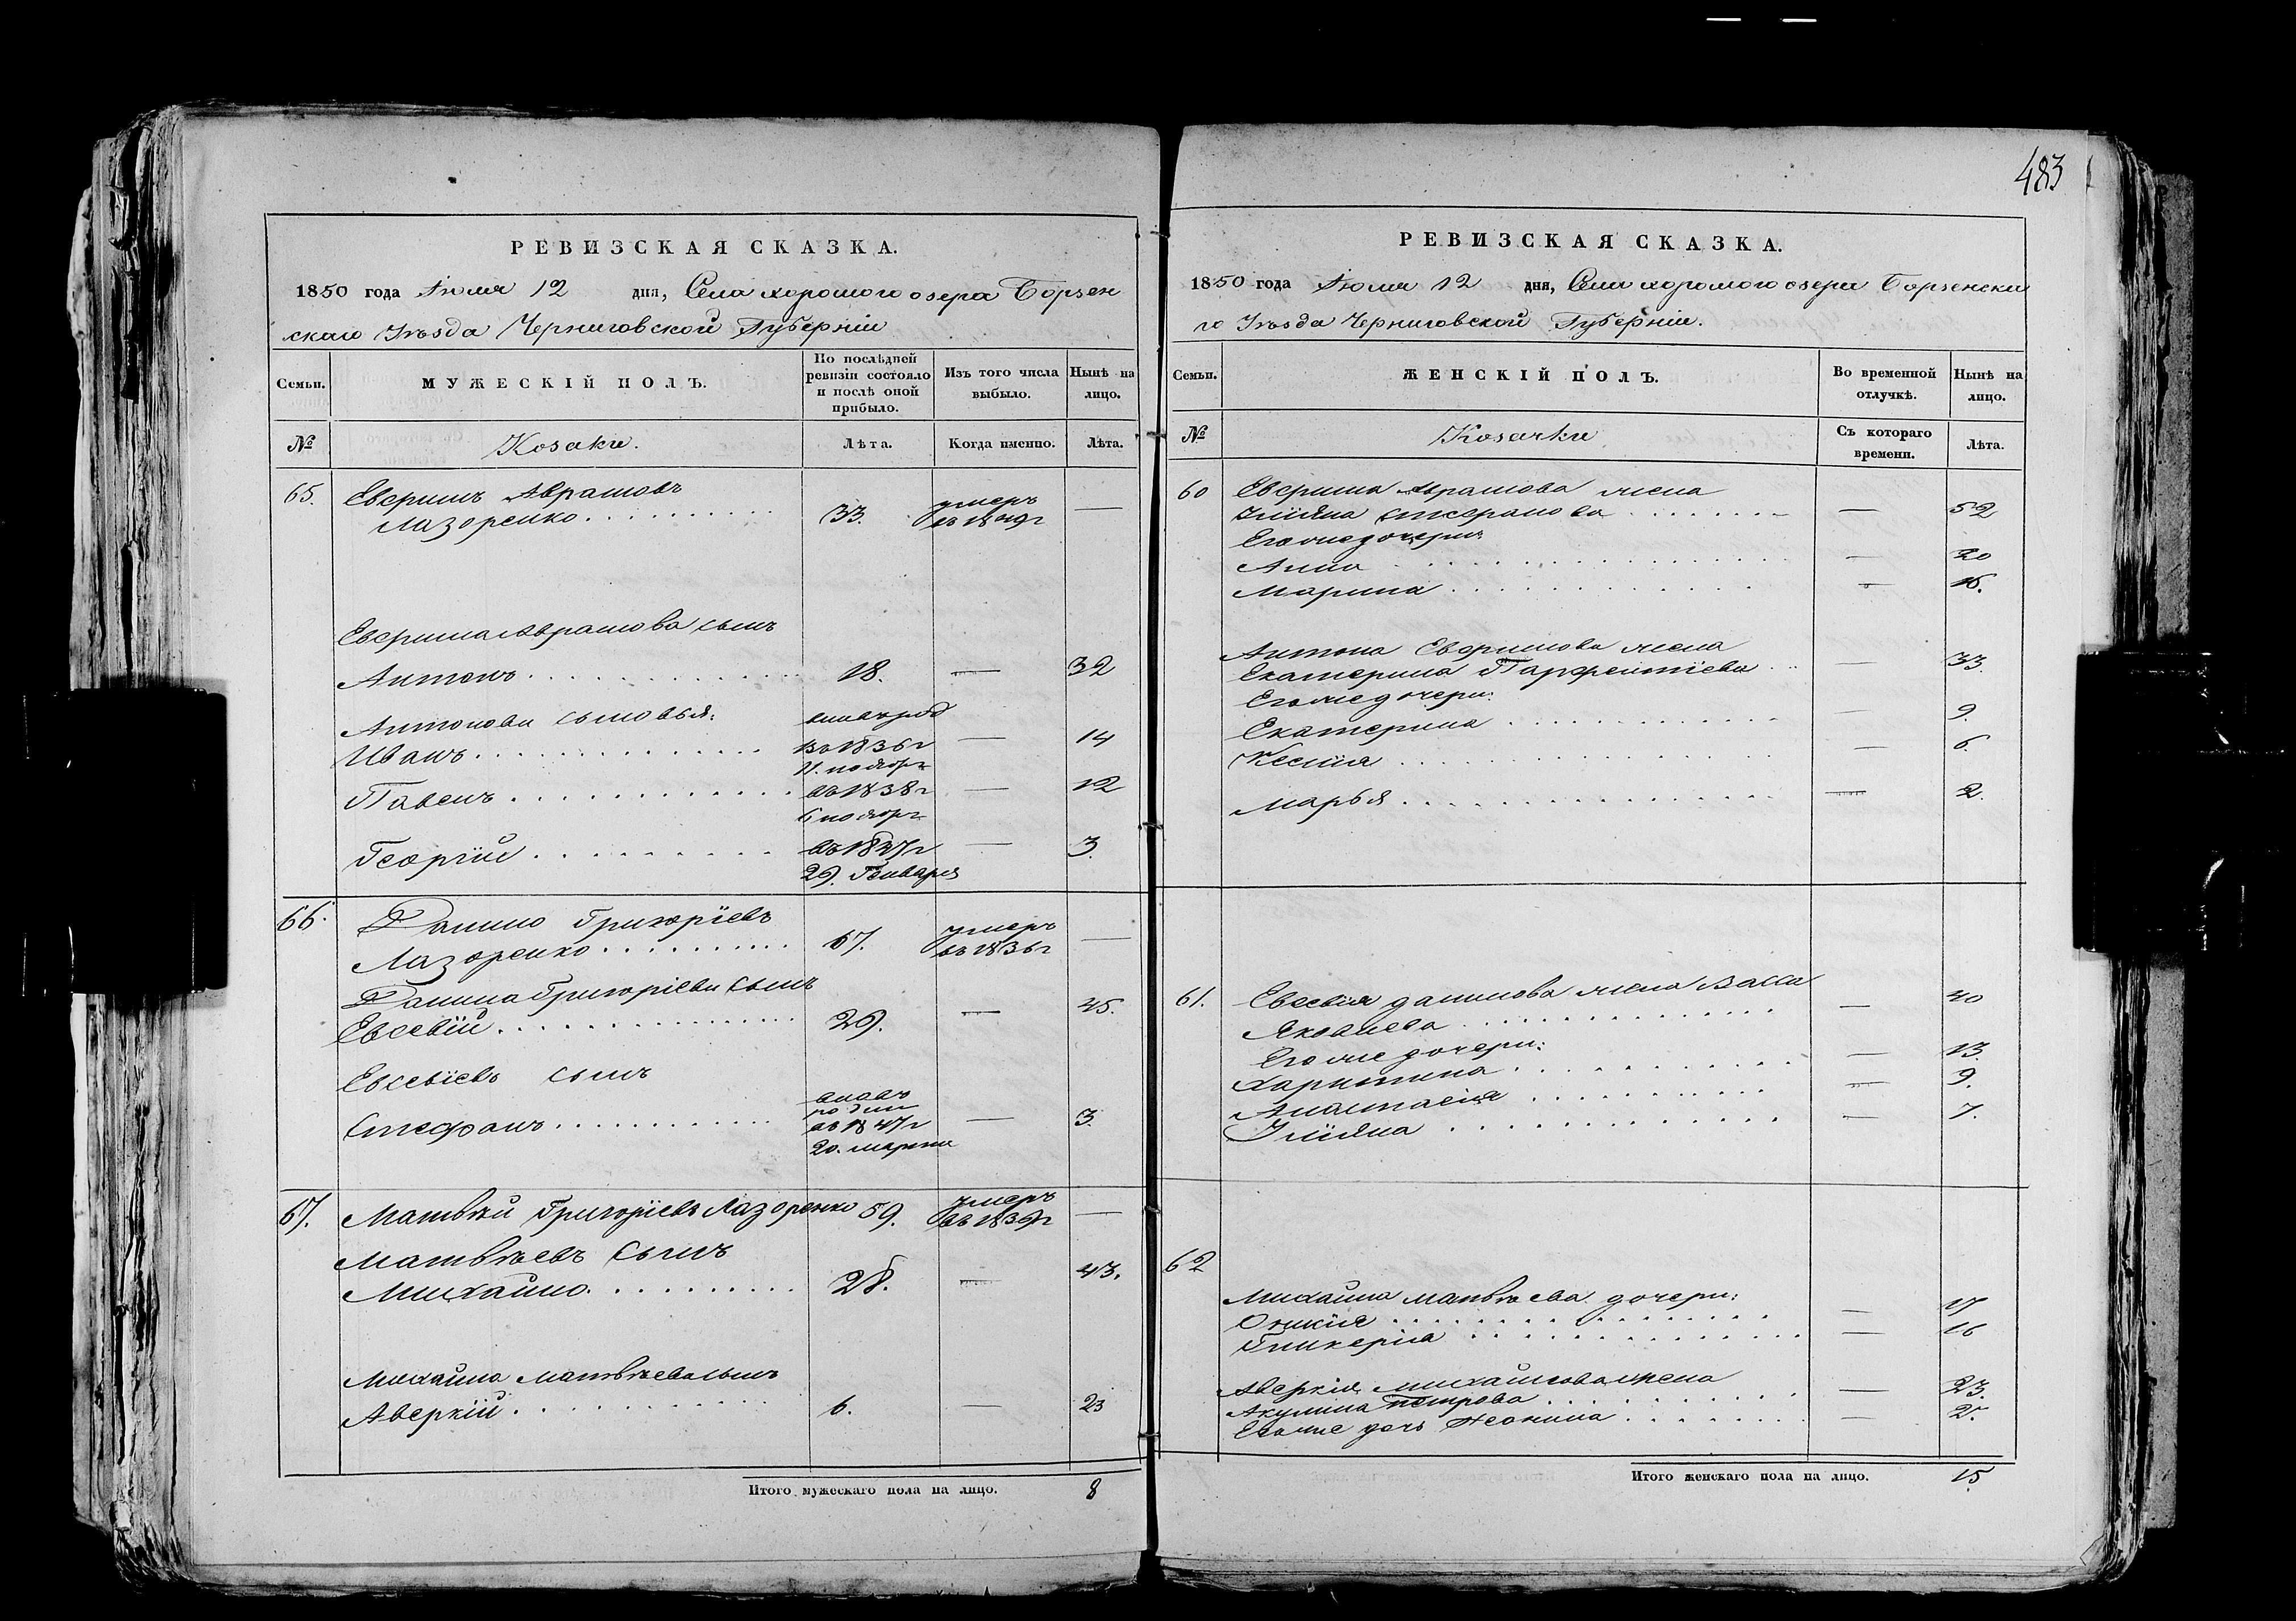 483
РЕВИЗСКАЯ СКАЗКА.
1850 года Іюля 12 дня, Села хорошого озера Борзен
скаго Уѣзда Черниговской Губерніи
Семьи. МУЖЕСКІЙ ПОЛЪ. По послѣдней ревизіи состояло и послѣ оной прибыло. Изъ того числа выбыло. Нынѣ на лицо.
№ Козаки. Лѣта. Когда именно. Лѣта.
65. Евфимъ Аврамовъ
Лазоренко 33. умеръ въ 1849г —
Евфима Аврамова сынъ
Антонъ 18. — 32
Антоновы сыновья:
Иванъ въ 1836г — 14
11. ноября
Павелъ въ 1838г — 12
6 ноября
Георгій въ 1847г — 3.
29. Генваря
66. Данило Григоріевъ
Лазоренко 67. умеръ въ 1836г —
Данила Григоріева сынъ
Евсевій 29. — 45.
Евсевіевъ сынъ
Стефанъ въ 1847г — 3.
20. марта
67. Матвѣй Григоріевъ Лазоренко 59. умеръ въ 1839г —
Матвѣевъ сынъ
Михайло 28. — 43.
Михайла Матвѣева сынъ
Аверкій 6. — 23
Итого мужескаго пола на лицо. 8
РЕВИЗСКАЯ СКАЗКА.
1850 года Іюля 12 дня, Села хорошого озера Борзенска
го Уѣзда Черниговской Губерніи.
Семьи. ЖЕНСКІЙ ПОЛЪ. Во временной отлучкѣ. Нынѣ на лицо.
№ Козачки Съ котораго времени. Лѣта.
60 Евфима Аврамова жена
Уліяна Стефанова — 52
Его же дочери
Анна — 20
Марина — 16.
Антона Евфимова жена
Екатерина Парфентіева — 33.
Его же дочери:
Екатерина — 9.
Ксенія — 6.
Марья — 2.
61. Евсевія данилова жена Васса — 40
Яковлева
Его же дочери:
Харитина — 13.
Анастасія — 9.
Уліяна — 7.
62
Михайла матвѣева дочери:
— 17
Гликерія — 16
Аверкія михайлова жена
Акулина петрова — 23.
Его же дочь — 2.
Итого женскаго пола на лицо. 15